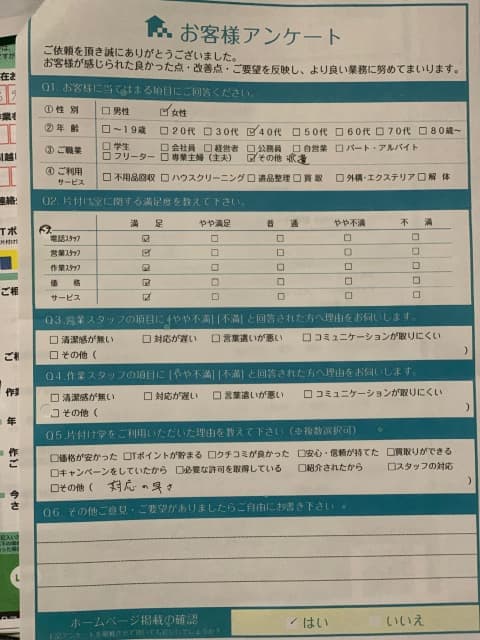 お客様アンケート
ご依頼を頂き誠にありがとうございました。
お客様が感じられた良かった点・改善点・ご要望を反映し、より良い業務に努めてまいります。
Q1. お客様に当てはまる項目にご回答ください。
① 性 別 □ 男性 ☑ 女性
② 年 齢 □ ～19歳 □ 20代 □ 30代 ☑ 40代 □ 50代 □ 60代 □ 70代 □ 80歳～
③ ご職業 □ 学生 □ 会社員 □ 経営者 □ 公務員 □ 自営業 □ パート・アルバイト
□ フリーター □ 専業主婦（主夫） ☑ その他
④ ご利用 サービス □ 不用品回収 □ ハウスクリーニング □ 遺品整理 □ 買取 □ 外構・エクステリア □ 解体
Q2. 片付け堂に関する満足度を教えて下さい。
満 足 やや満足 普 通 やや不満 不 満
電話スタッフ ☑ □ □ □ □
営業スタッフ ☑ □ □ □ □
作業スタッフ ☑ □ □ □ □
価 格 ☑ □ □ □ □
サービス ☑ □ □ □ □
Q3. 営業スタッフの項目に［やや不満］［不満］と回答された方へ理由をお伺いします。
□ 清潔感が無い □ 対応が遅い □ 言葉遣いが悪い □ コミュニケーションが取りにくい
□ その他（ ）
Q4. 作業スタッフの項目に［やや不満］［不満］と回答された方へ理由をお伺いします。
□ 清潔感が無い □ 対応が遅い □ 言葉遣いが悪い □ コミュニケーションが取りにくい
□ その他（ ）
Q5. 片付け堂をご利用いただいた理由を教えて下さい（※複数選択可）
□価格が安かった □Tポイントが貯まる □クチコミが良かった □安心・信頼が持てた □買取りができる
□キャンペーンをしていたから □必要な許可を取得している □紹介されたから □スタッフの対応
□その他（ 対応の早さ ）
Q6. その他ご意見・ご要望がありましたらご自由にお書き下さい。
ホームページ掲載の確認 ☑ はい □ いいえ